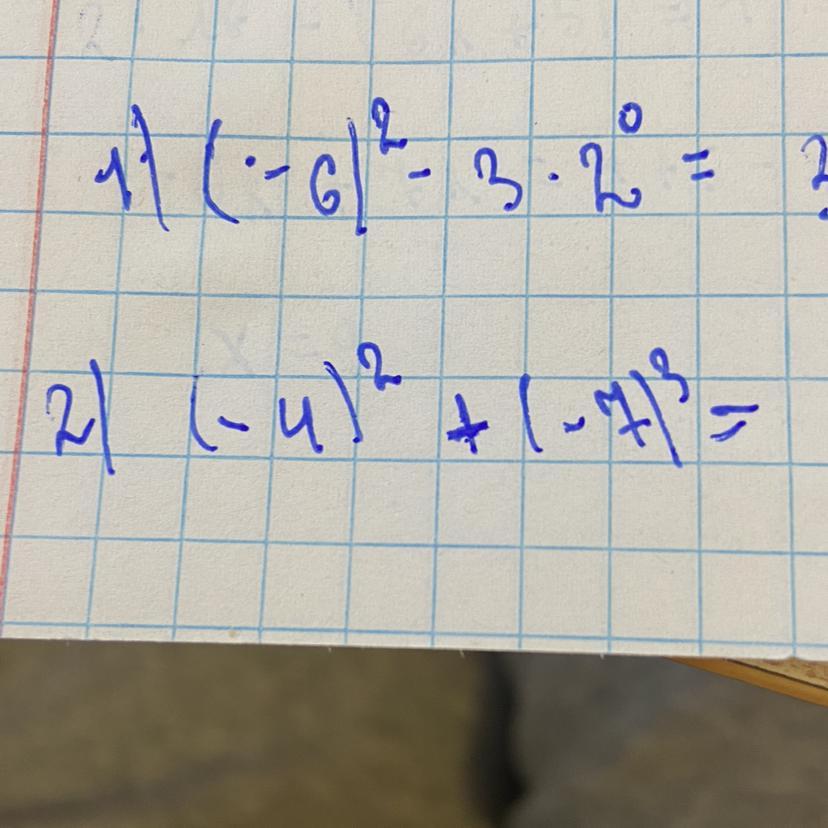 1) (-6)² - 3 · 2⁰ =
2) (-4)² + (-7)³ =